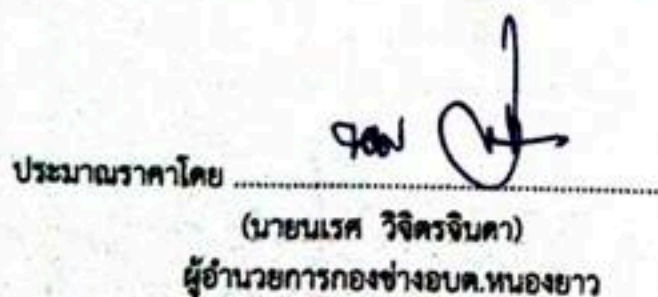 ประมาณราคาโดย ........................................................
(นายนเรศ วิจิตรจินดา)
ผู้อำนวยการกองช่างอบต.หนองยาว